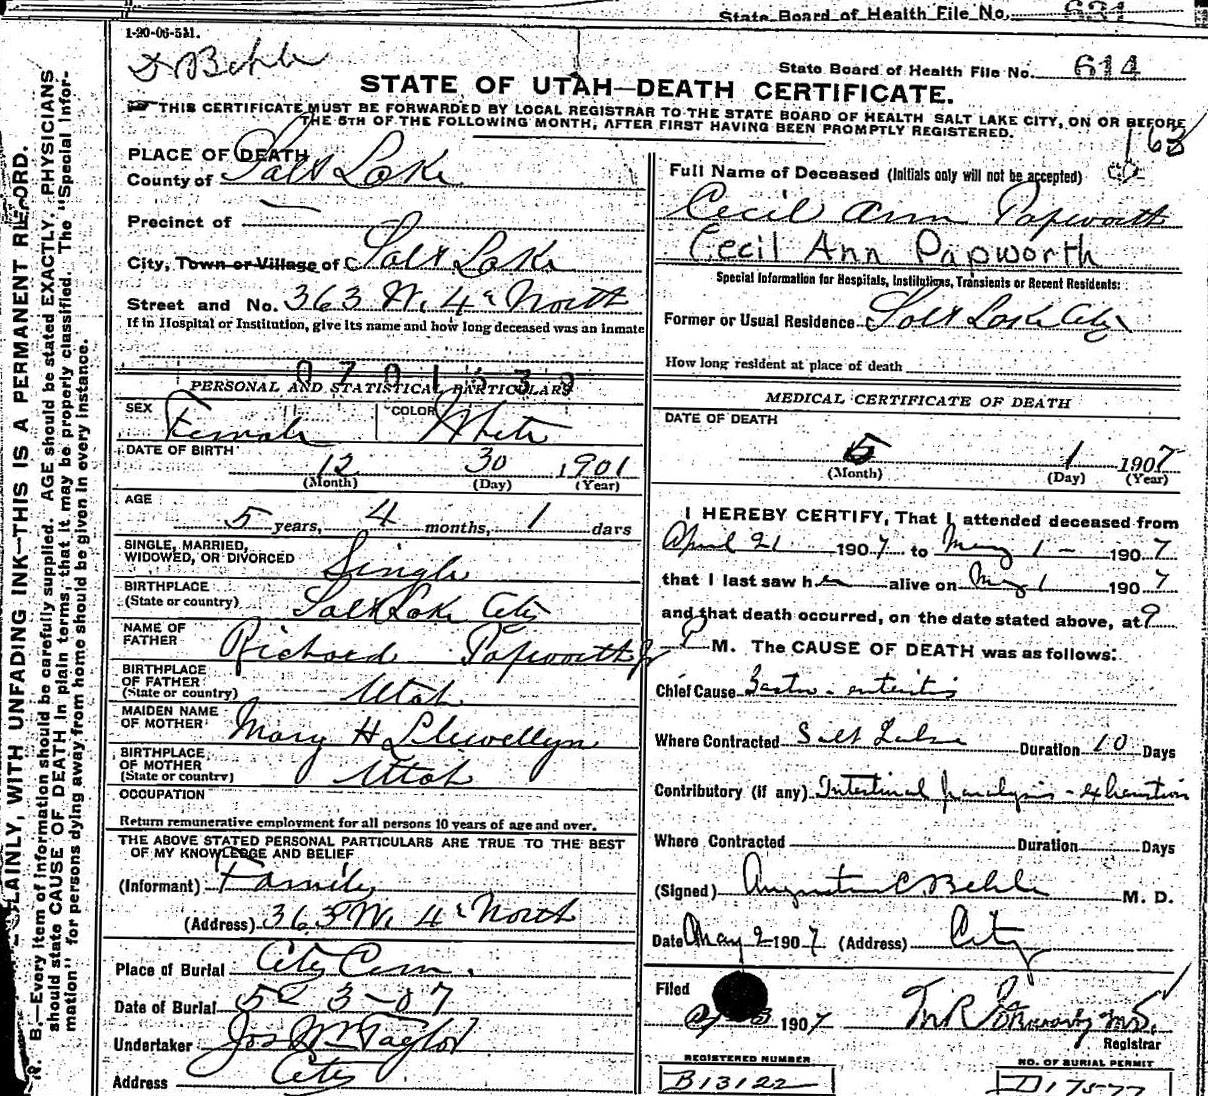 State Board of Health File No. 631
1-20-06-5M.
Dr Behle
State Board of Health File No. 614
STATE OF UTAH—DEATH CERTIFICATE.
THIS CERTIFICATE MUST BE FORWARDED BY LOCAL REGISTRAR TO THE STATE BOARD OF HEALTH SALT LAKE CITY, ON OR BEFORE
THE 5TH OF THE FOLLOWING MONTH, AFTER FIRST HAVING BEEN PROMPTLY REGISTERED.
163
PLACE OF DEATH
County of Salt Lake
Precinct of —
City, Town or Village of Salt Lake
Street and No. 363 W. 4th North
If in Hospital or Institution, give its name and how long deceased was an inmate
0701530
PERSONAL AND STATISTICAL PARTICULARS
SEX Female COLOR White
DATE OF BIRTH 12 30 1901
(Month) (Day) (Year)
AGE
5 years, 4 months, 1 days
SINGLE, MARRIED,
WIDOWED, OR DIVORCED Single
BIRTHPLACE
(State or country) Salt Lake City
NAME OF
FATHER Richard Papworth Jr
BIRTHPLACE
OF FATHER
(State or country) Utah
MAIDEN NAME
OF MOTHER Mary H Llewellyn
BIRTHPLACE
OF MOTHER
(State or country) Utah
OCCUPATION
Return remunerative employment for all persons 10 years of age and over.
THE ABOVE STATED PERSONAL PARTICULARS ARE TRUE TO THE BEST
OF MY KNOWLEDGE AND BELIEF
(Informant) Family
(Address) 363 W. 4th North
Place of Burial City Cem.
Date of Burial 5 3-07
Undertaker Jos Wm Taylor
Address City
Full Name of Deceased (Initials only will not be accepted)
Cecil Ann Papworth
Cecil Ann Papworth
Special Information for Hospitals, Institutions, Transients or Recent Residents:
Former or Usual Residence Salt Lake City
How long resident at place of death
MEDICAL CERTIFICATE OF DEATH
DATE OF DEATH
5 1 1907
(Month) (Day) (Year)
I HEREBY CERTIFY, That I attended deceased from
April 21 1907 to May 1 - 1907
that I last saw her alive on May 1 1907
and that death occurred, on the date stated above, at 9
P M. The CAUSE OF DEATH was as follows:
Chief Cause Gastro-enteritis
Where Contracted Salt Lake Duration 10 Days
Contributory (if any) Intestinal paralysis - exhaustion
Where Contracted Duration Days
(Signed) Augustus C Behle M. D.
Date May 2 1907 (Address) City
Filed
3 1907
Registrar
REGISTERED NUMBER
B13122
NO. OF BURIAL PERMIT
D17577
PLAINLY, WITH UNFADING INK—THIS IS A PERMANENT RECORD.
N. B.—Every item of information should be carefully supplied. AGE should be stated EXACTLY. PHYSICIANS
should state CAUSE OF DEATH in plain terms, that it may be properly classified. The "Special Infor-
mation" for persons dying away from home should be given in every instance.